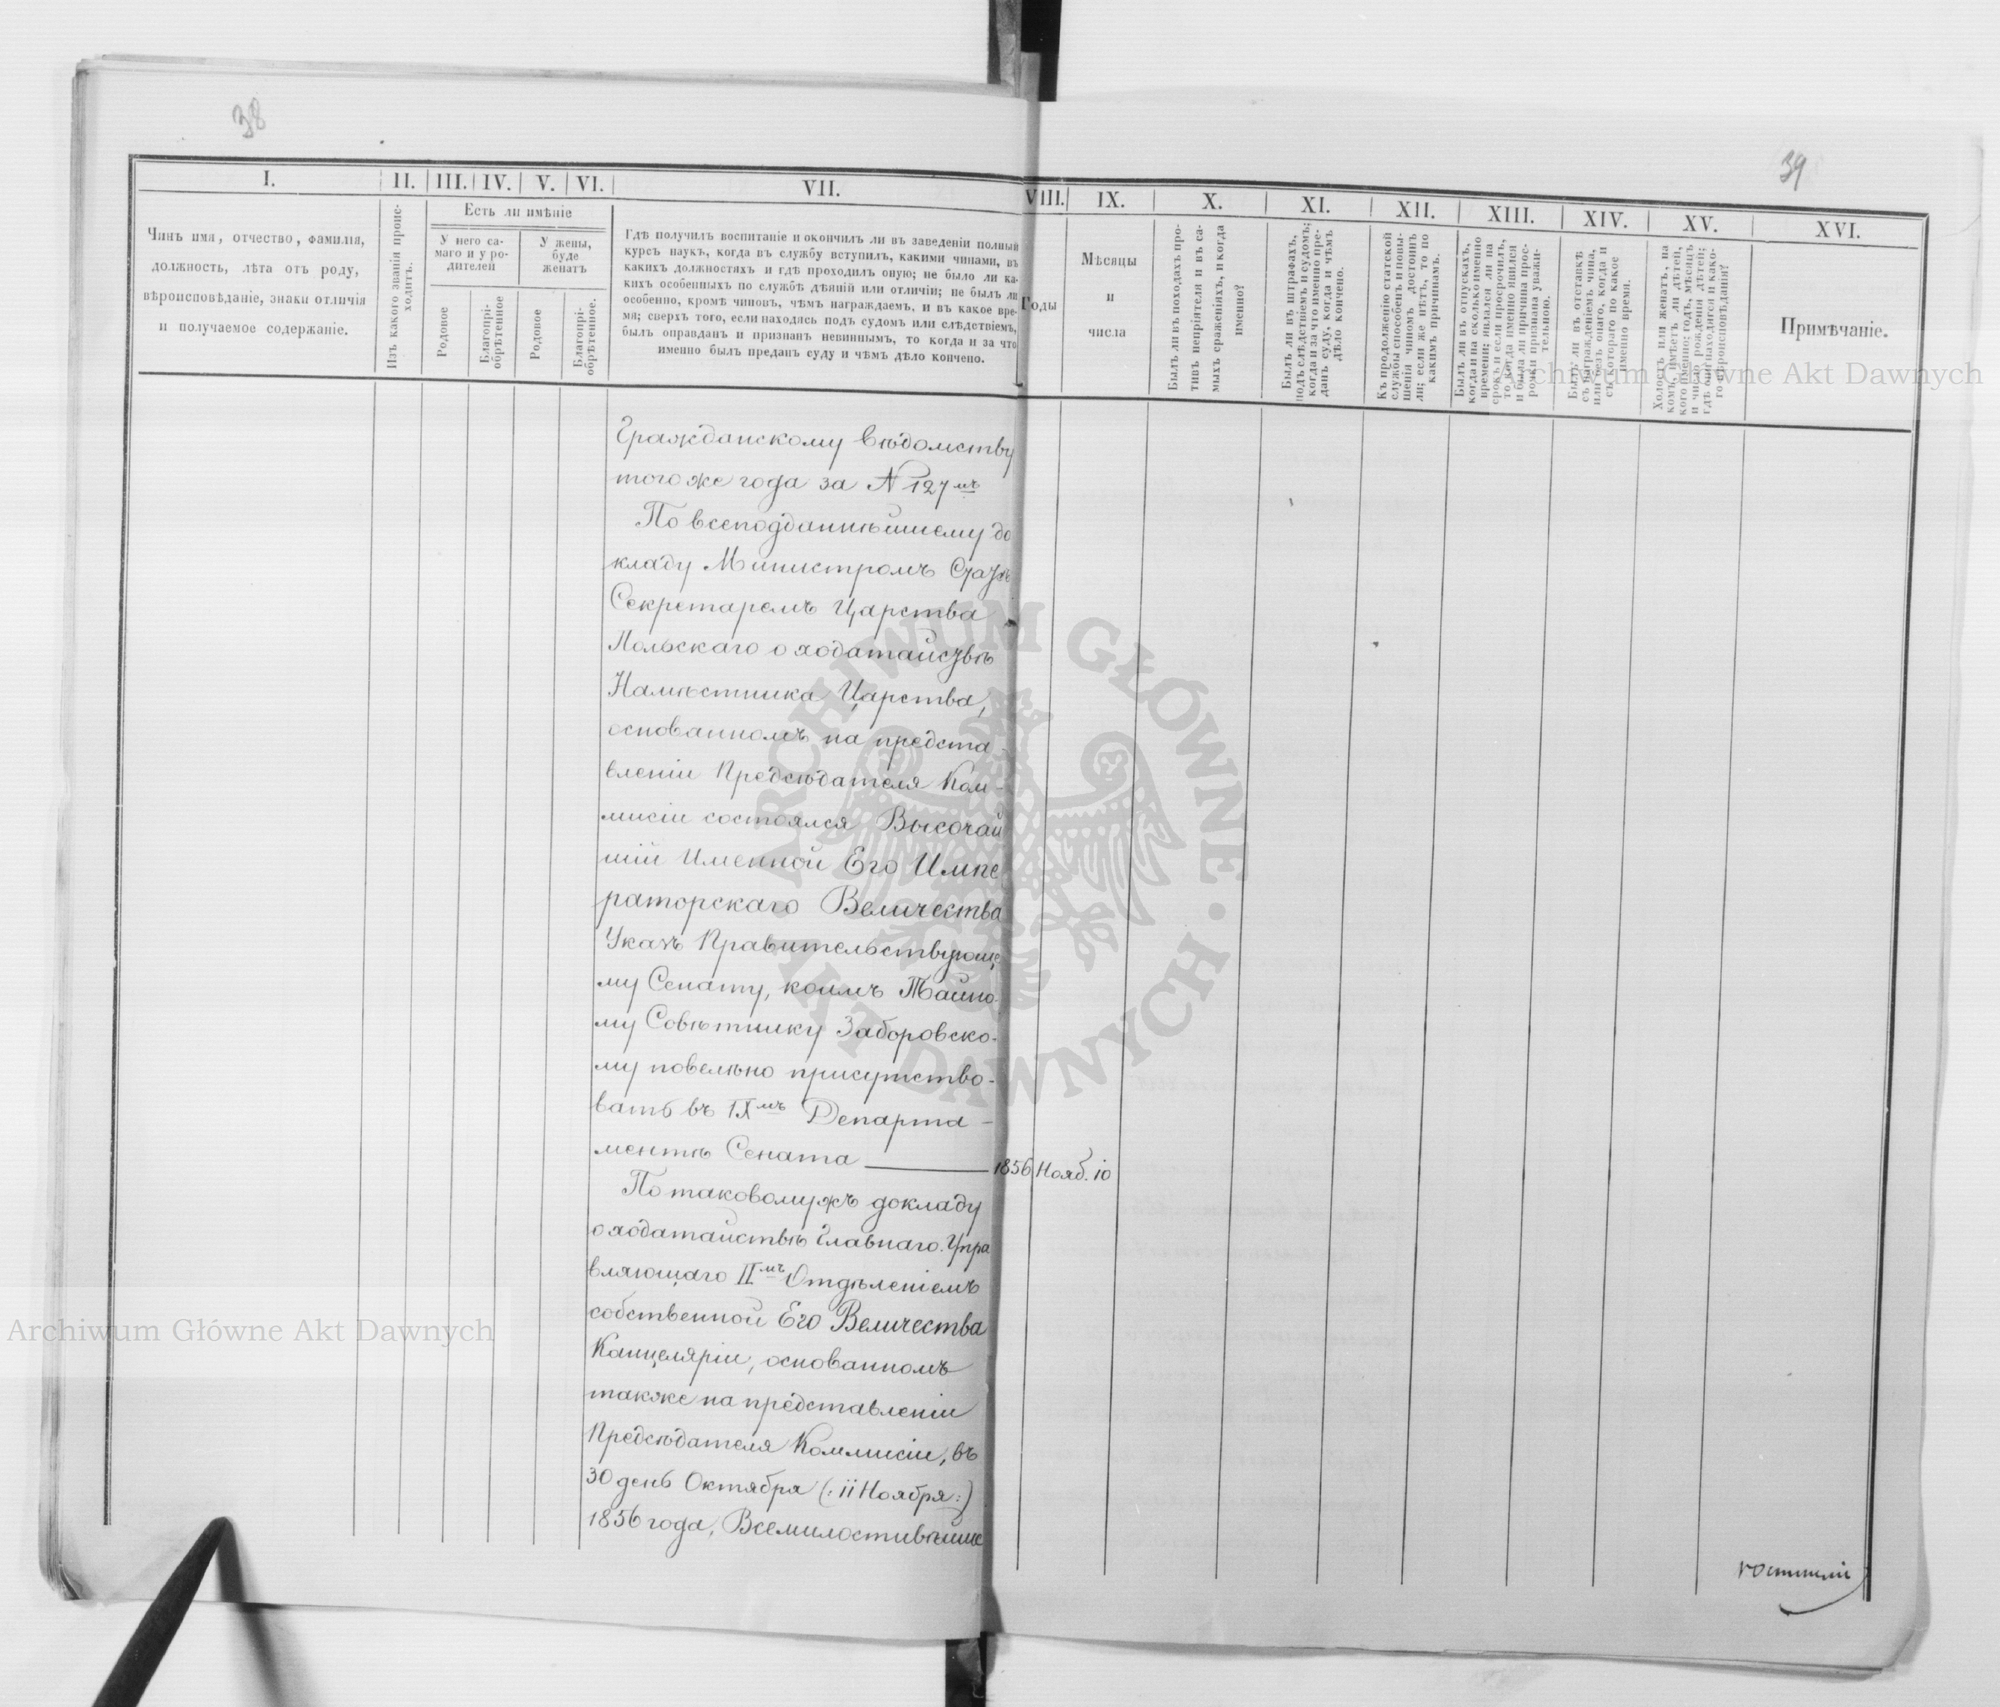 38
39
I.
II.
III.
IV.
V.
VI.
VII.
VIII.
IX.
X.
XI.
XII.
XIII.
XIV.
XV.
XVI.
Чинъ имя, отчество, фамилія,
должность, лѣта отъ роду,
вѣроисповѣданіе, знаки отличія
и получаемое содержаніе.
Изъ какого званія проис-
ходитъ.
Есть ли имѣніе
У него са-
маго и у ро-
дителей
У жены,
буде
женатъ
Родовое
Благопрі-
обрѣтенное
Родовое
Благопрі-
обрѣтенное.
Гдѣ получилъ воспитаніе и окончилъ ли въ заведеніи полный
курсъ наукъ, когда въ службу вступилъ, какими чинами, въ
какихъ должностяхъ и гдѣ проходилъ оную; не было ли ка-
кихъ особенныхъ по службѣ дѣяній или отличіи; не былъ ли
особенно, кромѣ чиновъ, чѣмъ награждаемъ, и въ какое вре-
мя; сверхъ того, если находясь подъ судомъ или слѣдствіемъ,
былъ оправданъ и признанъ невиннымъ, то когда и за что
именно былъ преданъ суду и чѣмъ дѣло кончено.
Годы
Мѣсяцы
и
числа
Былъ ли въ походахъ про-
тивъ непріятеля и въ са-
мыхъ сраженіяхъ, и когда
именно?
Былъ ли въ штрафахъ,
подъ слѣдствіемъ и судомъ;
когда и за что именно пре-
данъ суду, когда и чѣмъ
дѣло кончено.
Къ продолженію статской
службы способенъ и повы-
шенія чиномъ достоинъ
ли; если же нѣтъ, то по
какимъ причинамъ.
Былъ ли въ отпускахъ,
когда и на сколько именно
времени; являлся ли на
срокъ и если просрочилъ,
то когда именно явился
и была ли причина прос-
рочки признана уважи-
тельною.
Былъ ли въ отставкѣ
съ награжденіемъ чина,
или безъ онаго, когда и
съ котораго по какое
именно время.
Холостъ или женатъ, на
комъ, имѣетъ ли дѣтей,
кого именно; годъ, мѣсяцъ
и число рожденія дѣтей;
гдѣ они находятся и како-
го вѣроисповѣданія?
Примѣчаніе.
Гражданскому вѣдомству
того же года за № 127мъ
По всеподданнѣйшему до
кладу Министромъ Статсъ
Секретаремъ Царства
Польскаго о ходатайствѣ
Намѣстника Царства,
основанномъ на предста-
вленіи Предсѣдателя Ком-
мисіи состоялся Высочай
шій Именной Его Импе
раторскаго Величества
Указъ Правительствующе
му Сенату, коимъ Тайно-
му Совѣтнику Заборовско-
му повелѣно присутство-
вать въ IXмъ Департа-
ментѣ Сената 1856 Нояб. 10
По таковому жъ докладу
о ходатайствѣ Главнаго Упра
вляющаго IIмъ Отдѣленіемъ
собственной Его Величества
Канцеляріи, основанномъ
также на представленіи
Предсѣдателя Коммисіи, въ
30 день Октября (: 11 Ноября :)
1856 года, Всемилостивѣйше
Archiwum Główne Akt Dawnych
Archiwum Główne Akt Dawnych
ARCHIWUM GŁÓWNE AKT DAWNYCH